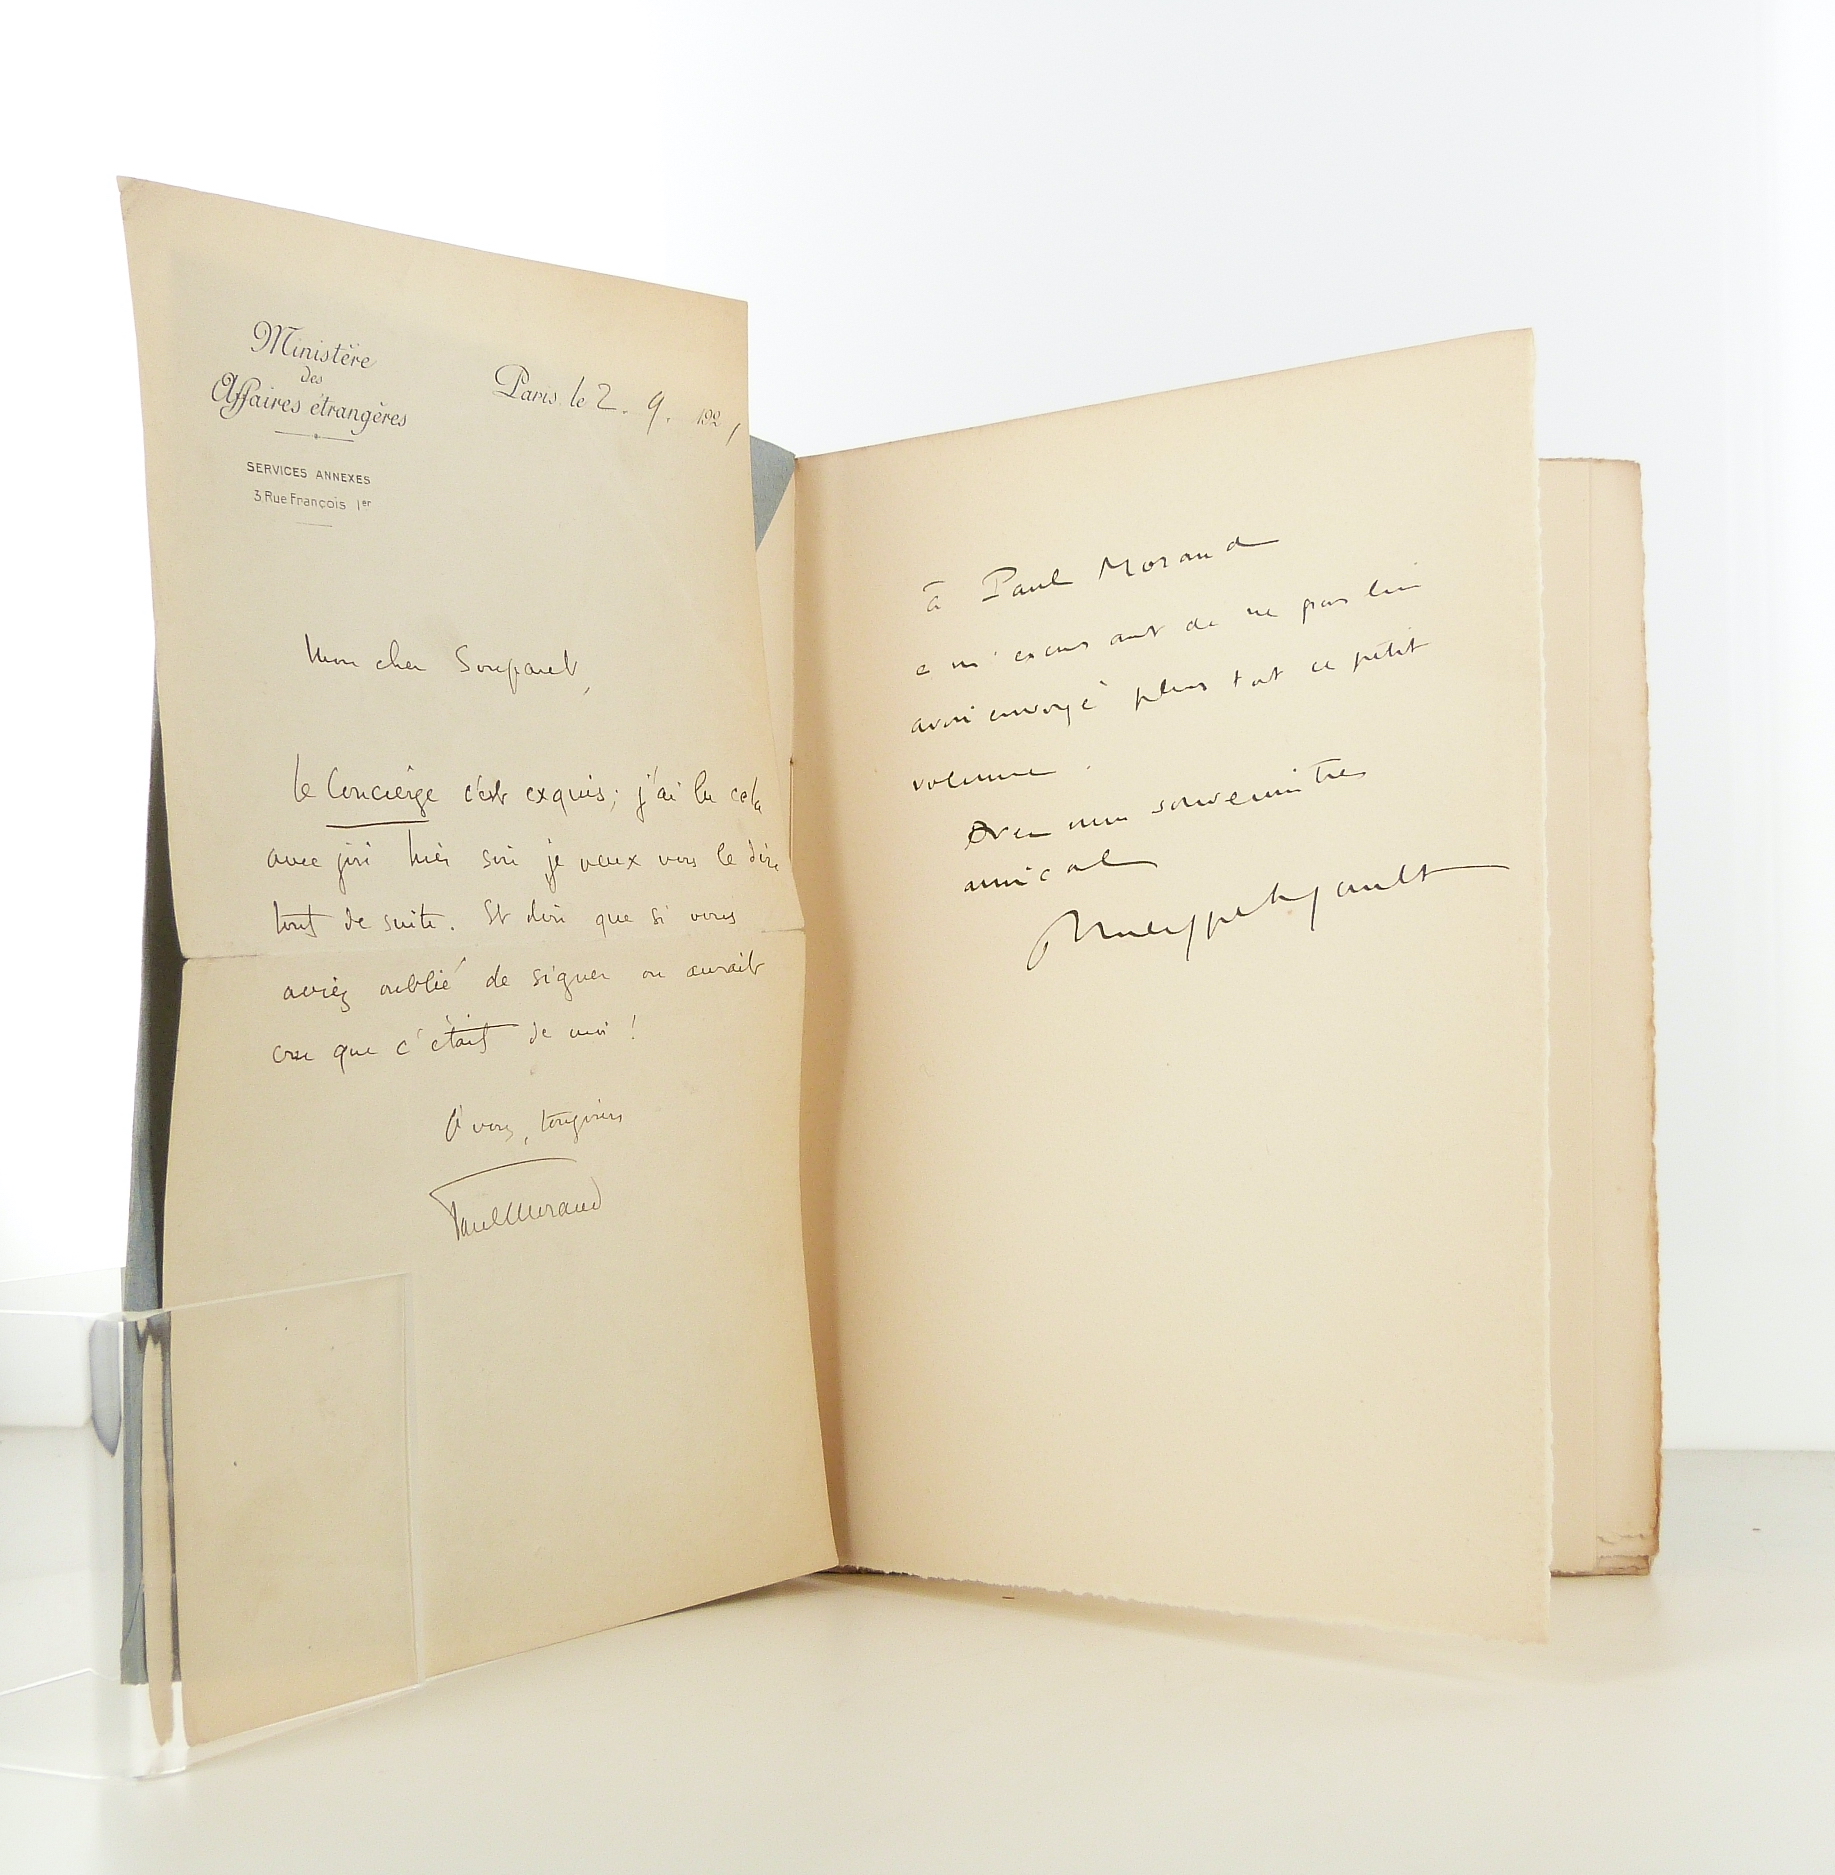 Ministère
des
Affaires étrangères
SERVICES ANNEXES
3, Rue François 1er
Paris, le 2. 9. 1921
Mon cher Soupault,
le Concierge c'est exquis; j'ai lu cela
avec joie hier soir je veux vous le dire
tout de suite. Et dire que si vous
aviez oublié de signer on aurait
cru que c'était de moi !
À vous, toujours
Paul Morand
à Paul Morand
e m'excusant de ne pas lui
avoir envoyé plus tôt ce petit
volume.
Avec mon souvenir très
amical
Philippe Soupault